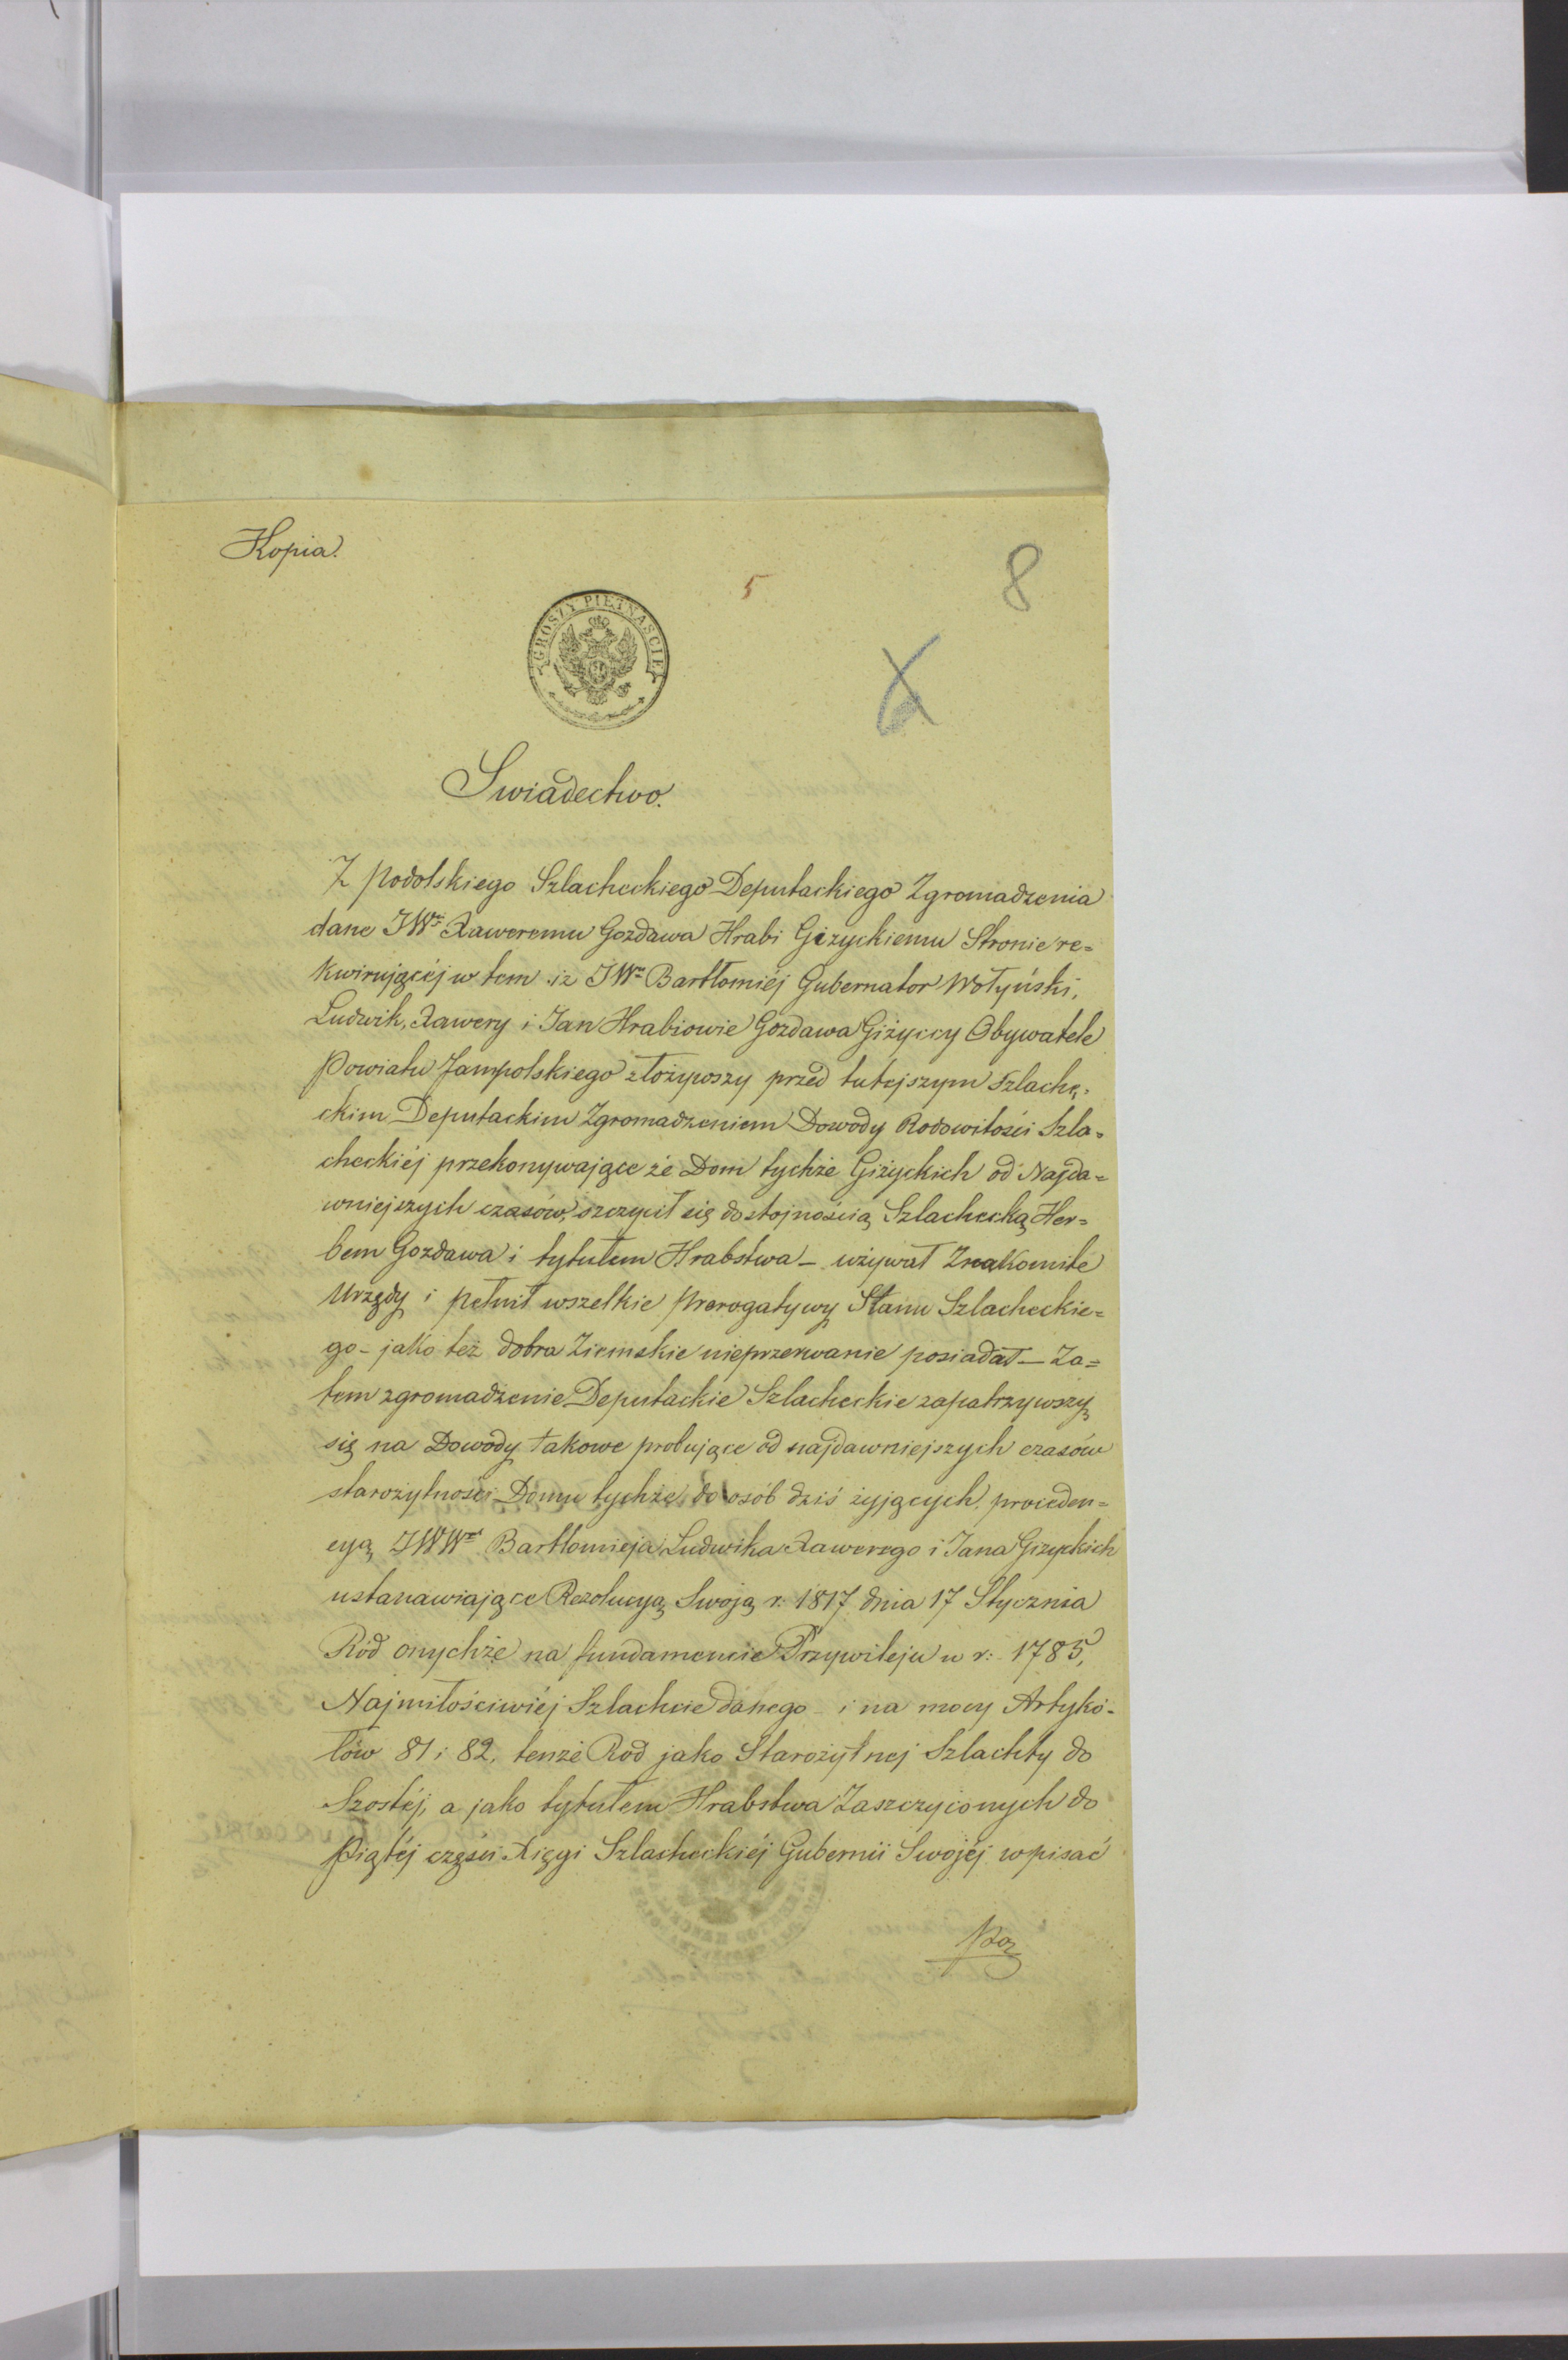 Kopia.
5
8
GROSZY PIETNASCIE
Swiadectwo.
Z Podolskiego Szlacheckiego Deputackiego Zgromadzenia
dane JW. Xaweremu Gozdawa Hrabi Giżyckiemu Stronie re=
kwirującéj w tem iż JW. Bartłomiéj Gubernator Wołyński,
Ludwik, Xawery i Jan Hrabiowie Gozdawa Giżyccy Obywatele
Powiatu Jampolskiego złożywszy przed tutejszym Szlache=
ckim Deputackim Zgromadzeniem Dowody Rodowitości Szla=
checkiéj przekonywające że Dom tychże Giżyckich od Najda=
wniejszych czasów, szczycił się dostojnością Szlachecką Her=
bem Gozdawa i tytułem Hrabstwa – używał Znakomite
Urzędy i pełnił wszelkie prerogatywy Stanu Szlacheckie=
go – jako też dobra Ziemskie nieprzerwanie posiadał – Za=
tem zgromadzenie Deputackie Szlacheckie zapatrzywszy
się na Dowody takowe probujące od najdawniejszych czasów
starożytności Domu tychże do osób dziś żyjących, proceden=
cyą JWW. Bartłomieja Ludwika Xawerego i Jana Giżyckich
ustanawiające Rezolucyą Swoją r: 1817 dnia 17 Stycznia
Ród onychże na fundamencie Przywileju w r: 1785,
Najmiłościwiéj Szlachcie danego i na mocy Artyko=
łów 81 i 82, tenże Ród jako Starożytnej Szlachty do
Szostéj, a jako tytułem Hrabstwa Zaszczyconych do
Piątéj części Xięgi Szlacheckiéj Gubernii Swojéj wpisać